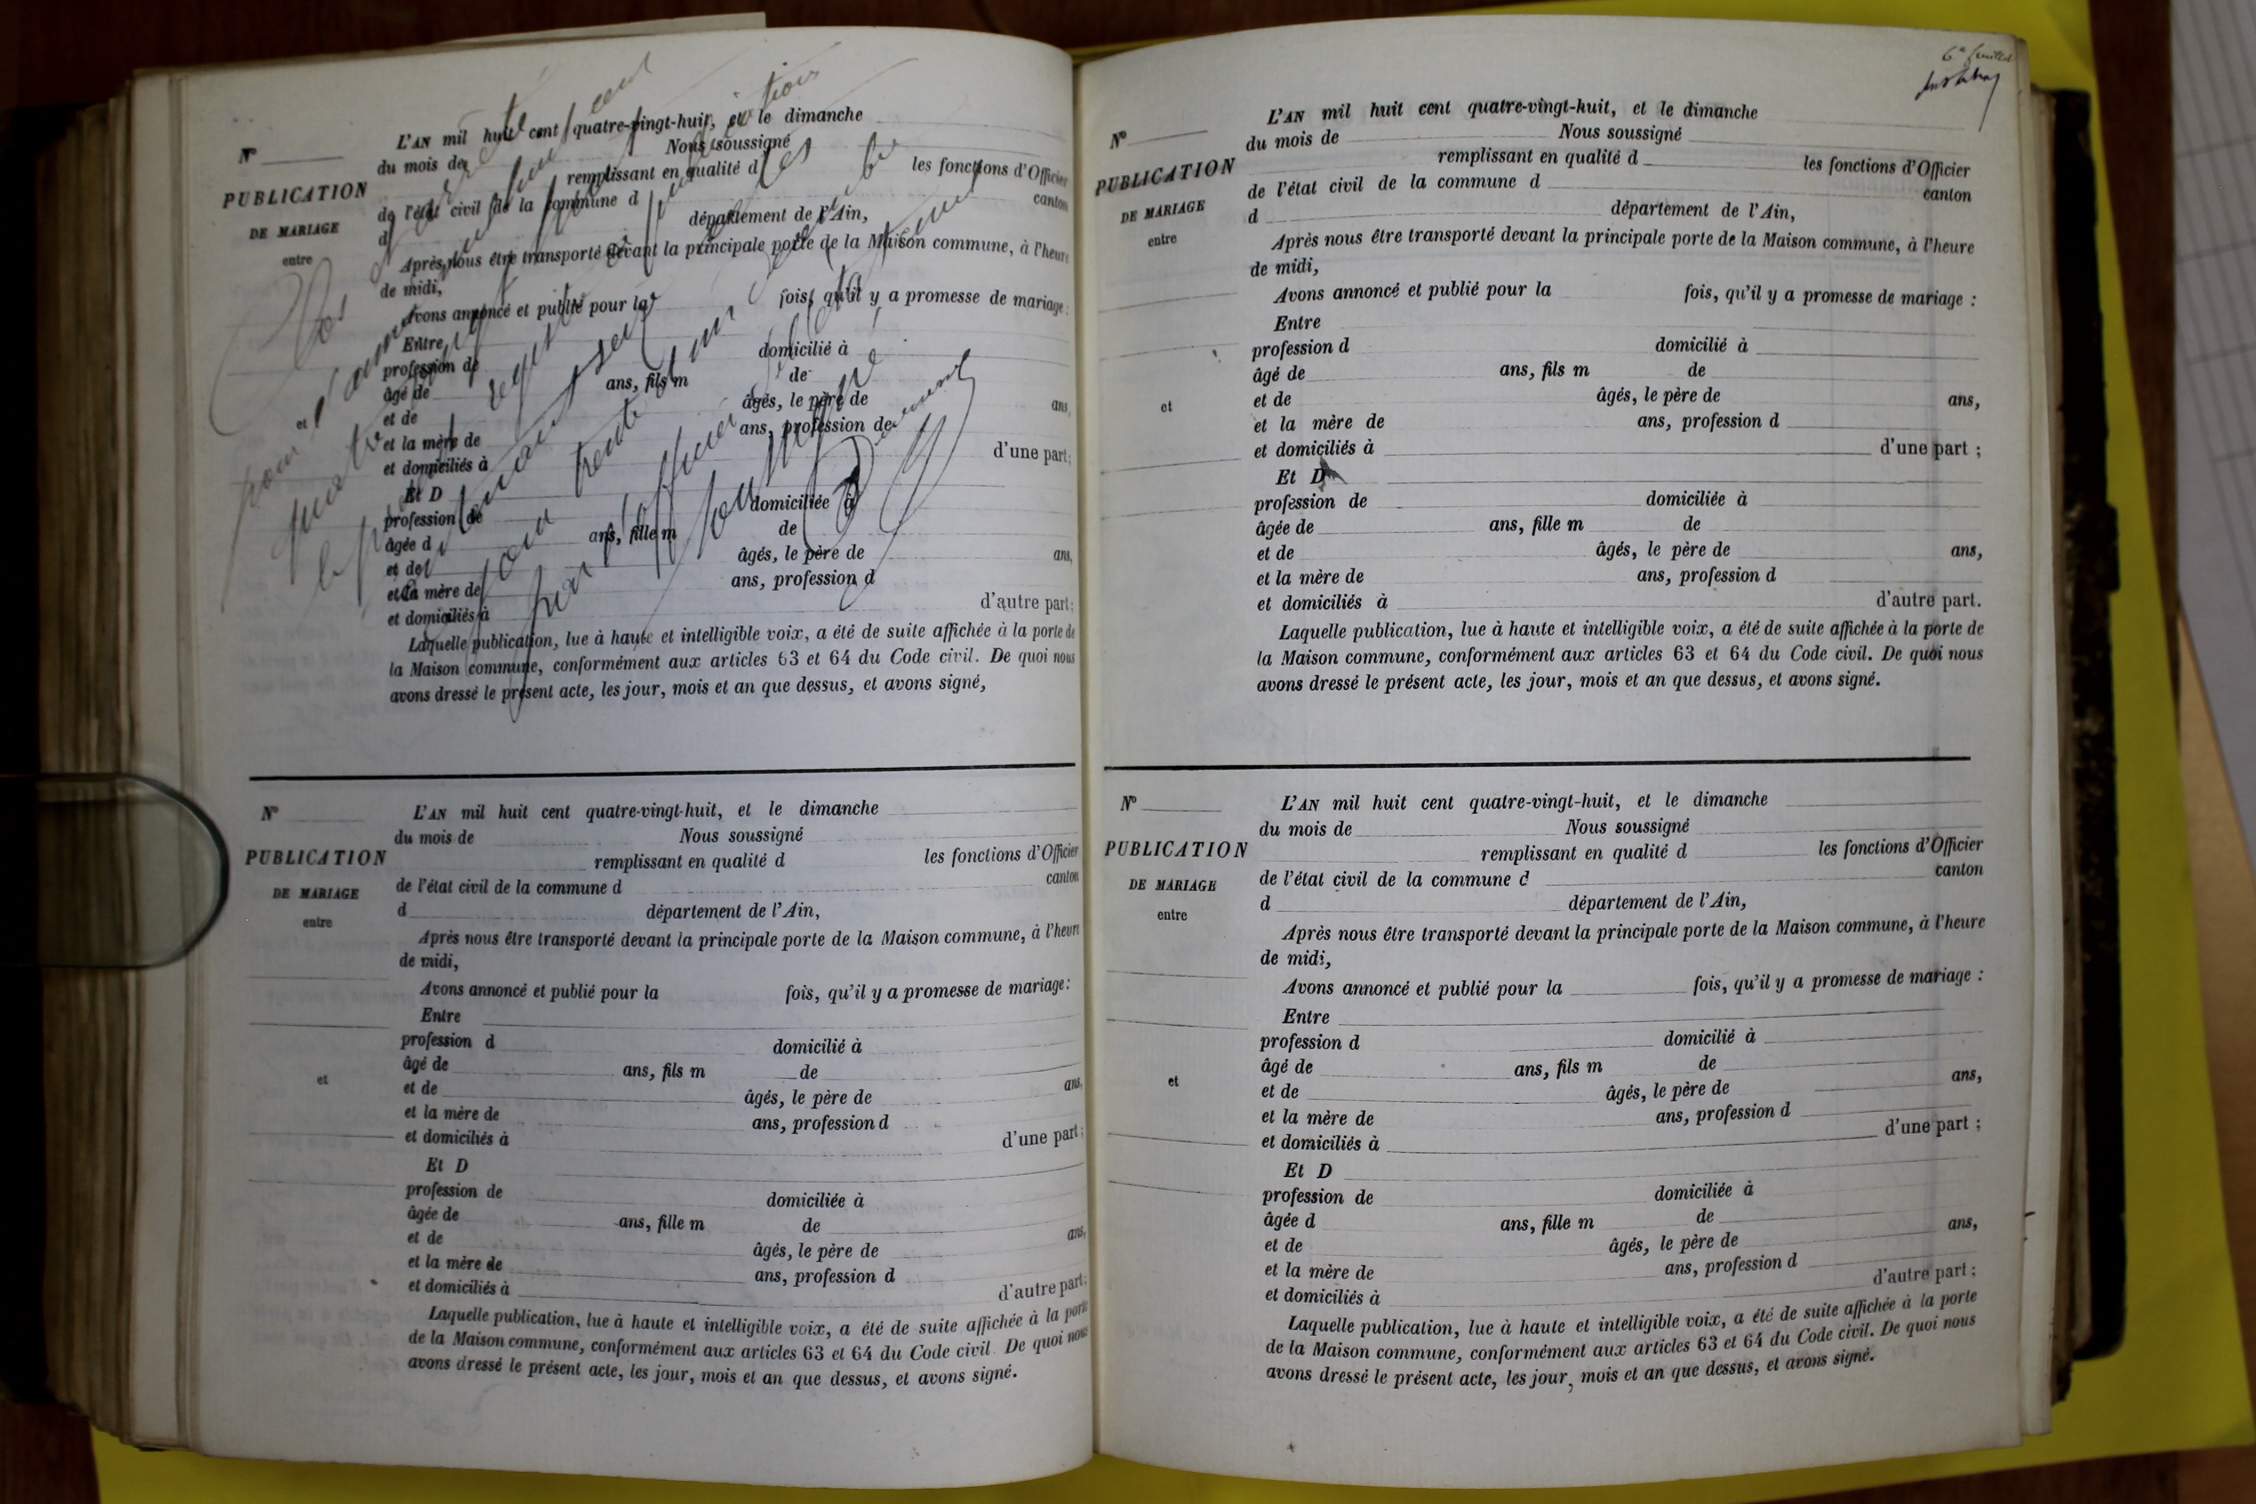 Nº
PUBLICATION
DE MARIAGE
entre
et
L'AN mil huit cent quatre-vingt-huit, et le dimanche
du mois de Nous soussigné
remplissant en qualité d les fonctions d'Officier
de l'état civil de la commune d canton
d département de l'Ain,
Après nous être transporté devant la principale porte de la Maison commune, à l'heure
de midi,
Avons annoncé et publié pour la fois, qu'il y a promesse de mariage :
Entre
profession de domicilié à
âgé de ans, fils m de
et de âgés, le père de ans,
et la mère de ans, profession de
et domiciliés à d'une part ;
Et D
profession de domiciliée à
âgée d ans, fille m de
et de âgés, le père de ans,
et la mère de ans, profession d
et domiciliés à d'autre part ;
Laquelle publication, lue à haute et intelligible voix, a été de suite affichée à la porte de
la Maison commune, conformément aux articles 63 et 64 du Code civil. De quoi nous
avons dressé le présent acte, les jour, mois et an que dessus, et avons signé,
Clos
pour l'année
quatre
le
trente un décembre
par l'officier
soussigné
Nº
PUBLICATION
DE MARIAGE
entre
et
L'AN mil huit cent quatre-vingt-huit, et le dimanche
du mois de Nous soussigné
remplissant en qualité d les fonctions d'Officier
de l'état civil de la commune d canton
d département de l'Ain,
Après nous être transporté devant la principale porte de la Maison commune, à l'heure
de midi,
Avons annoncé et publié pour la fois, qu'il y a promesse de mariage :
Entre
profession d domicilié à
âgé de ans, fils m de
et de âgés, le père de ans,
et la mère de ans, profession d
et domiciliés à d'une part ;
Et D
profession de domiciliée à
âgée de ans, fille m de
et de âgés, le père de ans,
et la mère de ans, profession d
et domiciliés à d'autre part ;
Laquelle publication, lue à haute et intelligible voix, a été de suite affichée à la porte
de la Maison commune, conformément aux articles 63 et 64 du Code civil. De quoi nous
avons dressé le présent acte, les jour, mois et an que dessus, et avons signé.
6e feuillet
Nº
PUBLICATION
DE MARIAGE
entre
et
L'AN mil huit cent quatre-vingt-huit, et le dimanche
du mois de Nous soussigné
remplissant en qualité d les fonctions d'Officier
de l'état civil de la commune d canton
d département de l'Ain,
Après nous être transporté devant la principale porte de la Maison commune, à l'heure
de midi,
Avons annoncé et publié pour la fois, qu'il y a promesse de mariage :
Entre
profession d domicilié à
âgé de ans, fils m de
et de âgés, le père de ans,
et la mère de ans, profession d
et domiciliés à d'une part ;
Et D
profession de domiciliée à
âgée de ans, fille m de
et de âgés, le père de ans,
et la mère de ans, profession d
et domiciliés à d'autre part.
Laquelle publication, lue à haute et intelligible voix, a été de suite affichée à la porte de
la Maison commune, conformément aux articles 63 et 64 du Code civil. De quoi nous
avons dressé le présent acte, les jour, mois et an que dessus, et avons signé.
Nº
PUBLICATION
DE MARIAGE
entre
et
L'AN mil huit cent quatre-vingt-huit, et le dimanche
du mois de Nous soussigné
remplissant en qualité d les fonctions d'Officier
de l'état civil de la commune d canton
d département de l'Ain,
Après nous être transporté devant la principale porte de la Maison commune, à l'heure
de midi,
Avons annoncé et publié pour la fois, qu'il y a promesse de mariage :
Entre
profession d domicilié à
âgé de ans, fils m de
et de âgés, le père de ans,
et la mère de ans, profession d
et domiciliés à d'une part ;
Et D
profession de domiciliée à
âgée d ans, fille m de
et de âgés, le père de ans,
et la mère de ans, profession d
et domiciliés à d'autre part ;
Laquelle publication, lue à haute et intelligible voix, a été de suite affichée à la porte
de la Maison commune, conformément aux articles 63 et 64 du Code civil. De quoi nous
avons dressé le présent acte, les jour, mois et an que dessus, et avons signé.